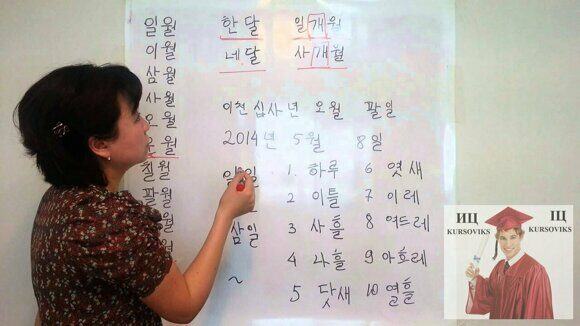 일월
이월
삼월
사월
오월
유월
칠월
팔월
월
한 달 일개월
네 달 사개월
이천 십사 년 오월 팔일
2014년 5월 8일
일일 1. 하루 6 엿새
2 이틀 7 이레
삼일 3 사흘 8 여드레
4 나흘 9 아흐레
~ 5 닷새 10 열흘
ИЦ ІЦ
KURSOVIKS KURSOVIKS